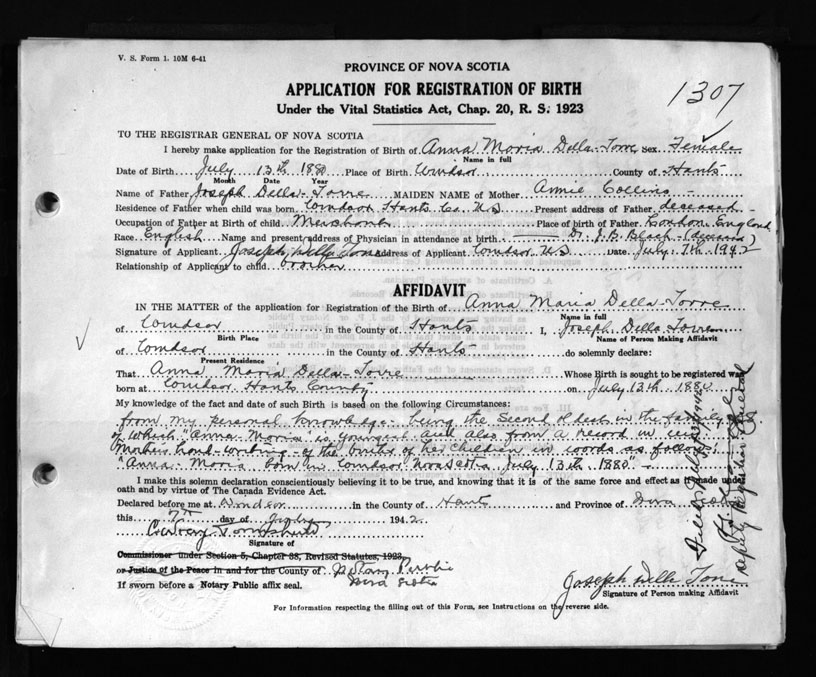 V. S. Form 1. 10M 6-41
PROVINCE OF NOVA SCOTIA
APPLICATION FOR REGISTRATION OF BIRTH
1307
Under the Vital Statistics Act, Chap. 20, R. S. 1923
TO THE REGISTRAR GENERAL OF NOVA SCOTIA
I hereby make application for the Registration of Birth of Anna Maria Della-Torre Sex Female
Name in full
Date of Birth July 13th 1880 Place of Birth Windsor County of Hants
Month Date Year
Name of Father Joseph Della-Torre MAIDEN NAME of Mother Annie Collins
Residence of Father when child was born Windsor Hants Co. N.S Present address of Father deceased
Occupation of Father at Birth of child Merchant Place of birth of Father London England
Race English Name and present address of Physician in attendance at birth Dr. J. B. Black (deceased)
Signature of Applicant Joseph Della Torre Address of Applicant Windsor N.S Date July 7th 1942
Relationship of Applicant to child brother
AFFIDAVIT
IN THE MATTER of the application for Registration of the Birth of Anna Maria Della-Torre
Name in full
of Windsor in the County of Hants I, Joseph Della Torre
Birth Place Name of Person Making Affidavit
of Windsor in the County of Hants do solemnly declare:
Present Residence
That Anna Maria Della-Torre Whose Birth is sought to be registered was
born at Windsor Hants County on July 13th 1880
My knowledge of the fact and date of such Birth is based on the following Circumstances:
from my personal knowledge being the Second Oldest in the family
of which "Anna Maria" is youngest and also from a record in my
Mothers hand-writing of the births of her Children in words as follows:
"Anna-Maria born in Windsor Nova Scotia July 13th 1880"
I make this solemn declaration conscientiously believing it to be true, and knowing that it is of the same force and effect as if made under
oath and by virtue of The Canada Evidence Act.
Declared before me at Windsor in the County of Hants and Province of Nova Scotia
this 7th day of 1942
Signature of
Commissioner under Section 5, Chapter 38, Revised Statutes, 1923,
or Justice of the Peace in and for the County of Notary Public
Nova Scotia
If sworn before a Notary Public affix seal.
Joseph Della Torre
Signature of Person making Affidavit
For Information respecting the filling out of this Form, see Instructions on the reverse side.
Deputy Registrar General